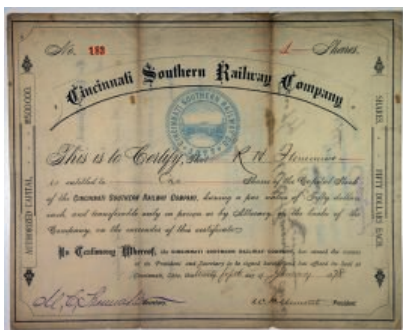 No. 183 1 Shares.
Cincinnati Southern Railway Company
CINCINNATI SOUTHERN RAILWAY CO.
This is to Certify, that R W
is entitled to One Share of the Capital Stock
of the CINCINNATI SOUTHERN RAILWAY COMPANY, having a par value of Fifty dollars
each, and transferable only in person or by Attorney on the books of the
Company, on the surrender of this certificate.
In Testimony Whereof, the CINCINNATI SOUTHERN RAILWAY COMPANY, has caused the names
of its President and Secretary to be signed hereto and has affixed its Seal at
Cincinnati, Ohio, this fifth day of January 1878
Secretary President
AUTHORIZED CAPITAL $500,000.
SHARES FIFTY DOLLARS EACH